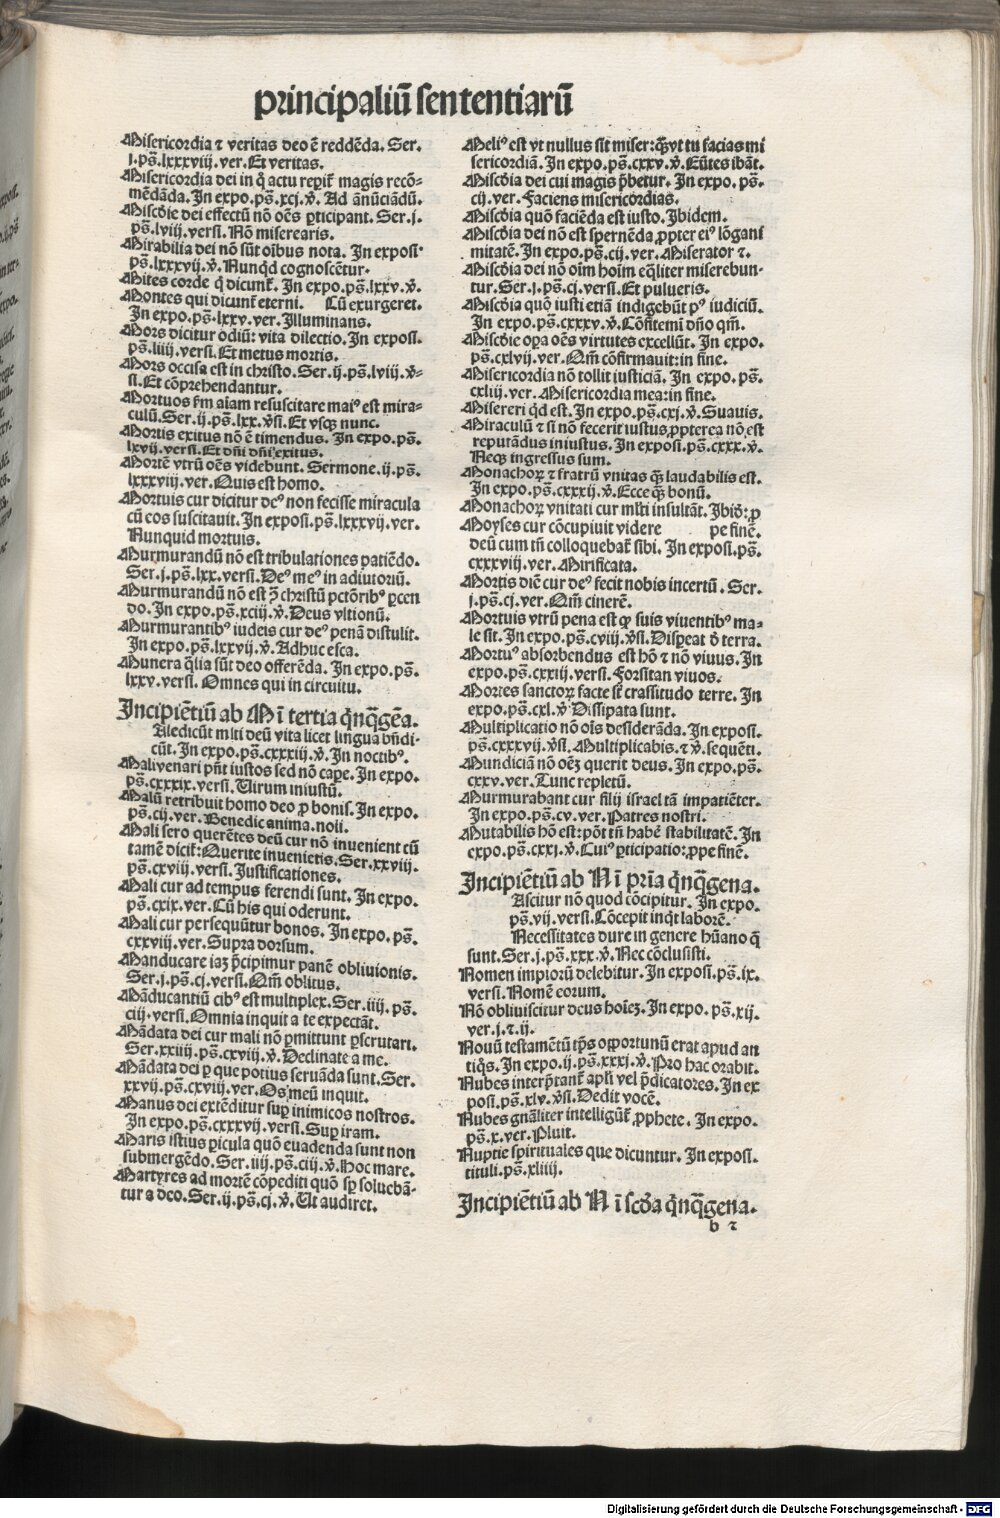 principaliū sententiarū
Misericordia ⁊ veritas deo ē reddēda. Ser.
j. ps̄. lxxxviij. ver. Et veritas.
Misericordia dei in q̄ actu reperit᷑ magis recō-
mēdāda. In expo. ps̄. xcj. v̄. Ad anūciādū.
Miscd̄ie dei effectū nō oēs ꝑticipant. Ser. j.
ps̄. lviij. versi. Nō miserearis.
Mirabilia dei nō sūt oībus nota. In exposi.
ps̄. lxxxvij. v̄. Nunqd cognoscētur.
Mites corde q̄ dicunt᷑. In expo. ps̄. lxxv. v̄.
Montes qui dicunt᷑ eterni. Cū exurgeret.
In expo. ps̄. lxxv. ver. Illuminans.
Mors dicitur odiū: vita dilectio. In exposi.
ps̄. liiij. versi. Et metus mortis.
Mors occisa est in christo. Ser. ij. ps̄. lviij. v̄-
si. Et cōprehendantur.
Mortuos fm aīam resuscitare maiꝰ est mira-
culū. Ser. ij. ps̄. lxx. v̄si. Et vsqꝫ nunc.
Mortis exitus nō ē timendus. In expo. ps̄.
lxvij. versi. Et dn̄i dn̄i exitus.
Mortē vtrū oēs videbunt. Sermone. ij. ps̄.
lxxxviij. ver. Quis est homo.
Mortuis cur dicitur deꝰ non fecisse miracula
cū eos suscitauit. In exposi. ps̄. lxxxvij. ver.
Nunquid mortuis.
Murmurandū nō est tribulationes patiēdo.
Ser. j. ps̄. lxx. versi. Deꝰ meꝰ in adiutoriū.
Murmurandū nō est ꝯ̄ christū pctōribꝰ ꝑcen
do. In expo. ps̄. xciij. v̄. Deus vltionū.
Murmurantibꝰ iudeis cur deꝰ penā distulit.
In expo. ps̄. lxxvij. v̄. Adhuc esca.
Munera q̄lia sūt deo offerēda. In expo. ps̄.
lxxv. versi. Omnes qui in circuitu.
Incipiētiū ab Mī tertia q̄nq̄gēa.
Aledicūt ml̄ti deū vita licet lingua bn̄di-
cūt. In expo. ps̄. cxxxiij. v̄. In noctibꝰ.
Mali venari pn̄t iustos sed nō caꝑe. In expo.
ps̄. cxxxix. versi. Uirum iniustū.
Malū retribuit homo deo ꝓ bonis. In expo.
ps̄. cij. ver. Benedic anima. noli.
Mali sero querētes deū cur nō inuenient cū
tamē dicit᷑: Querite inuenietis. Ser. xxviij.
ps̄. cxviij. versi. Justificationes.
Mali cur ad tempus ferendi sunt. In expo.
ps̄. cxix. ver. Cū his qui oderunt.
Mali cur persequūtur bonos. In expo. ps̄.
cxxviij. ver. Supra dorsum.
Manducare iaꝫ p̄cipimur panē obliuionis.
Ser. j. ps̄. cj. versi. Qm̄ oblitus.
Māducantiū cibꝰ est multiplex. Ser. iiij. ps̄.
ciij. versi. Omnia inquit a te expectāt.
Mādata dei cur mali nō ꝑmittunt ꝑscrutari.
Ser. xxiiij. ps̄. cxviij. v̄. Declinate a me.
Mādata dei ꝑ que potius seruāda sunt. Ser.
xxvij. ps̄. cxviij. ver. Os meū inquit.
Manus dei extēditur suꝑ inimicos nostros.
In expo. ps̄. cxxxvij. versi. Suꝑ iram.
Maris istius ꝑicula quō euadenda sunt non
submergēdo. Ser. iiij. ps̄. ciij. v̄. Hoc mare.
Martyres ad mortē cōpediti quō sꝑ soluebā-
tur a deo. Ser. ij. ps̄. cj. v̄. Ut audiret.
Meliꝰ est vt nullus sit miser: q̄ꝫ vt tu facias mi
sericordiā. In expo. ps̄. cxxv. v̄. Eūtes ibāt.
Miscd̄ia dei cui magis p̄betur. In expo. ps̄.
cij. ver. Faciens misericordias.
Miscd̄ia quō faciēda est iusto. Ibidem.
Miscd̄ia dei nō est spernēda ꝓpter eiꝰ lōgani
mitatē. In expo. ps̄. cij. ver. Miserator ⁊.
Miscd̄ia dei nō oīm hoīm eq̄liter miserebun-
tur. Ser. j. ps̄. cj. versi. Et pulueris.
Miscd̄ia quō iusti etiā indigebūt pꝰ iudiciū.
In expo. ps̄. cxxxv. v̄. Cōfitemī dn̄o qm̄.
Miscd̄ie oꝑa oēs virtutes excellūt. In expo.
ps̄. cxlvij. ver. Qm̄ cōfirmauit: in fine.
Misericordia nō tollit iusticiā. In expo. ps̄.
cxliij. ver. Misericordia mea: in fine.
Misereri qd est. In expo. ps̄. cxj. v̄. Suauis.
Miraculū ⁊ si nō fecerit iustus ꝓpterea nō est
reputādus iniustus. In exposi. ps̄. cxxx. v̄.
Neqꝫ ingressus sum.
Monachoꝝ ⁊ fratrū vnitas q̄ꝫ laudabilis est.
In expo. ps̄. cxxxij. v̄. Ecce q̄ꝫ bonū.
Monachoꝝ vnitati cur ml̄ti insultāt. Ibid̄: ꝓ
Moyses cur cōcupiuit videre pe finē.
deū cum tn̄ colloquebat᷑ sibi. In exposi. ps̄.
cxxxviij. ver. Mirificata.
Mortis diē cur deꝰ fecit nobis incertū. Ser.
j. ps̄. cj. ver. Qm̄ cinerē.
Mortuis vtrū pena est ꝙ suis viuentibꝰ ma-
le sit. In expo. ps̄. cviij. v̄si. Disꝑeat d̄ terra.
Mortuꝰ absorbendus est hō ⁊ nō viuus. In
expo. ps̄. cxxiij. versi. Forsitan viuos.
Mortes sanctoꝝ facte st̄ crassitudo terre. In
expo. ps̄. cxl. v̄. Dissipata sunt.
Multiplicatio nō oīs desiderāda. In exposi.
ps̄. cxxxvij. v̄si. Multiplicabis. ⁊ v̄. sequēti.
Mundiciā nō oēꝫ querit deus. In expo. ps̄.
cxxv. ver. Tunc repletū.
Murmurabant cur filij israel tā impatiēter.
In expo. ps̄. cv. ver. Patres nostri.
Mutabilis hō est: pōt tn̄ habē stabilitatē. In
expo. ps̄. cxxj. v̄. Cuiꝰ ꝑticipatio: ꝓpe finē.
Incipiētiū ab Nī prīa q̄nq̄gena.
Ascitur nō quod cōcipitur. In expo.
ps̄. vij. versi. Cōcepit inq̄t laborē.
Necessitates dure in genere hūano q̄
sunt. Ser. j. ps̄. xxx. v̄. Nec cōclusisti.
Nomen impiorū delebitur. In exposi. ps̄. ix.
versi. Nomē eorum.
Nō obliuiscitur deus hoīeꝫ. In expo. ps̄. xij.
ver. j. ⁊. ij.
Nouū testamētū tp̄s oꝑportunū erat apud an
tiq̄s. In expo. ij. ps̄. xxxj. v̄. Pro hac orabit.
Nubes interp̄tant᷑ apl̄i vel p̄dicatores. In ex
posi. ps̄. xlv. v̄si. Dedit vocē.
Nubes gn̄aliter intelligūt᷑ ꝓphete. In expo.
ps̄. x. ver. Pluit.
Nuptie spirituales que dicuntur. In exposi.
tituli. ps̄. xliiij.
Incipiētiū ab Nī scd̄a q̄nq̄gena.
b 2
Digitalisierung gefördert durch die Deutsche Forschungsgemeinschaft - DFG